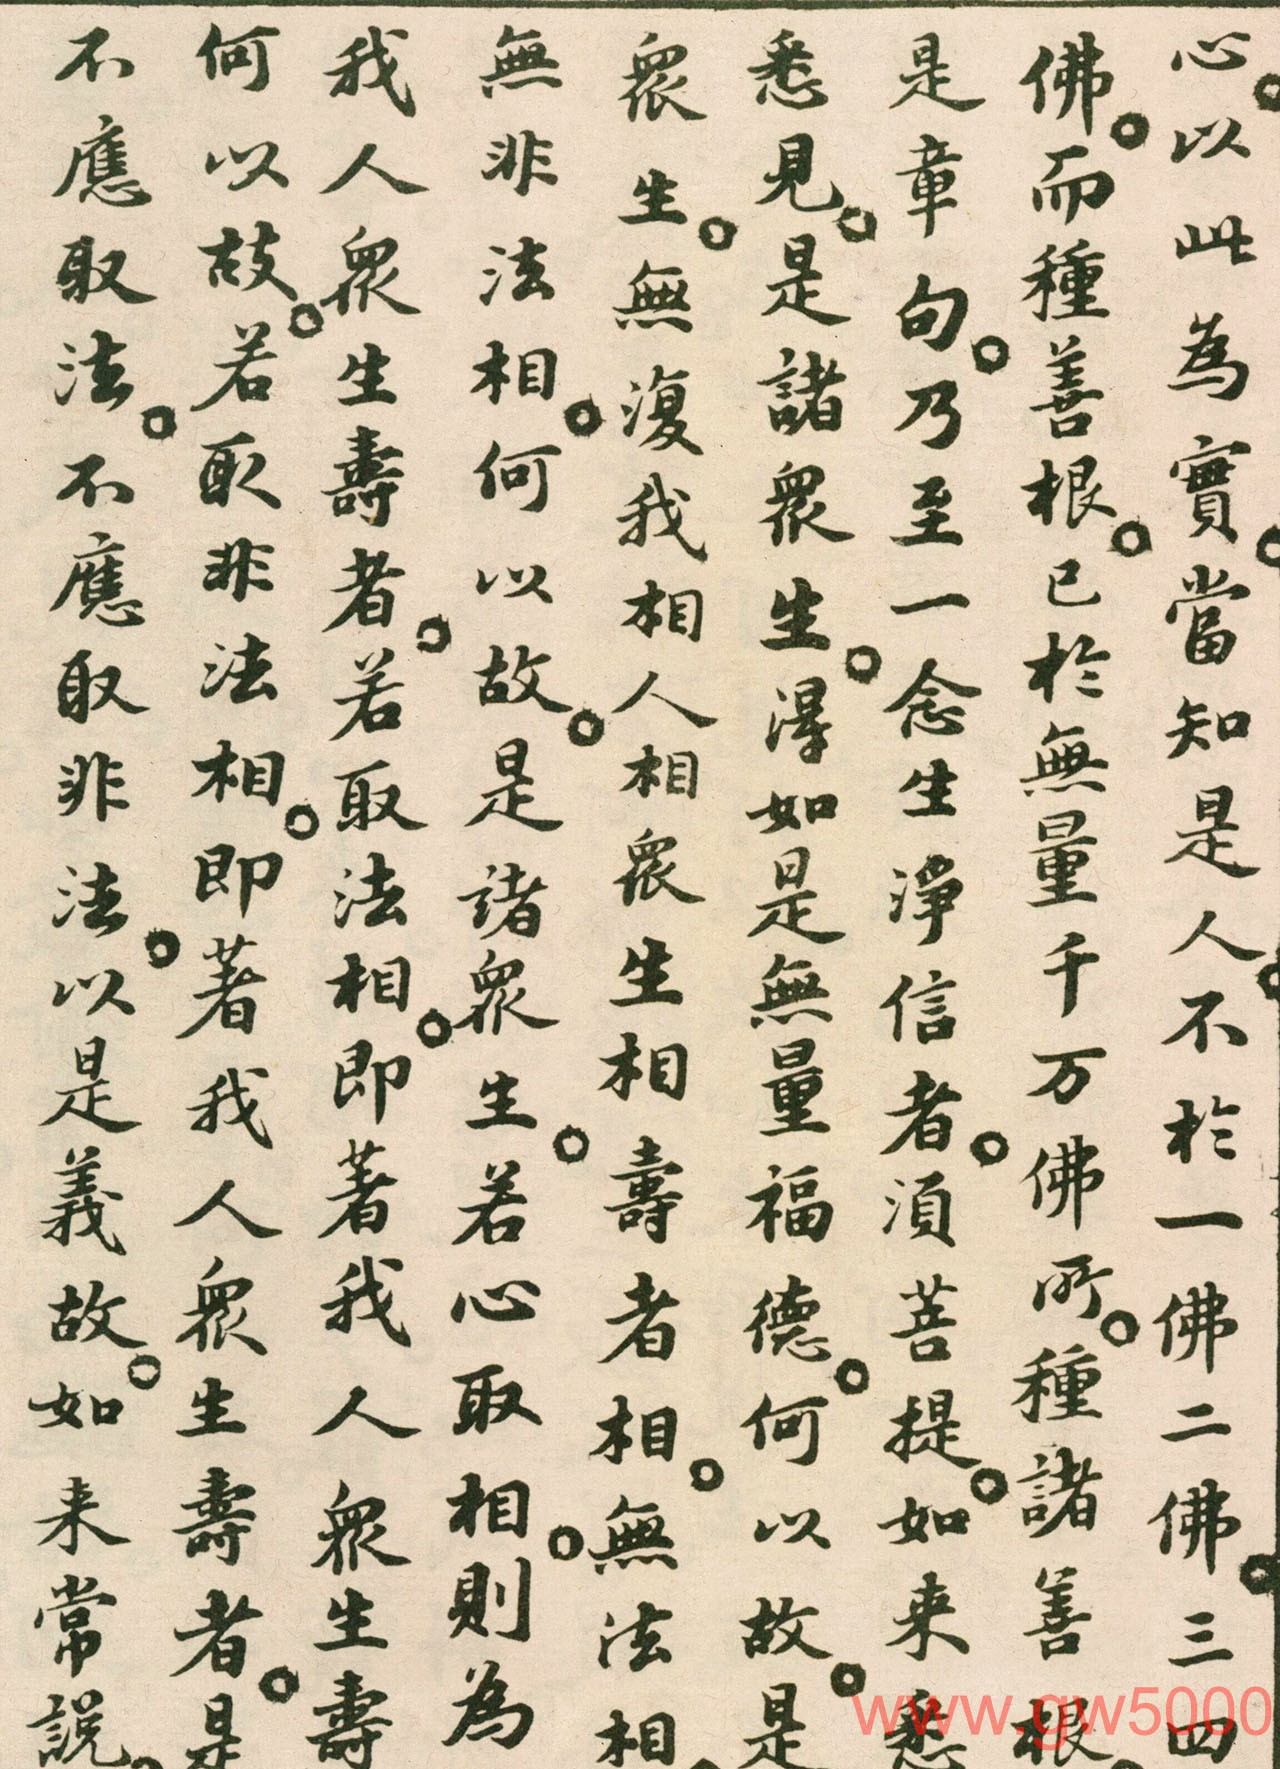 心以此為實當知是人不於一佛二佛三四
佛而種善根已於無量千万佛所種諸善根
是章句乃至一念生淨信者須菩提如来悉
悉見是諸衆生得如是無量福德何以故是
衆生無復我相人相衆生相壽者相無法相
無非法相何以故是諸衆生若心取相則為
我人衆生壽者若取法相即著我人衆生壽
何以故若取非法相即著我人衆生壽者是
不應取法不應取非法以是義故如来常説
www.gw5000